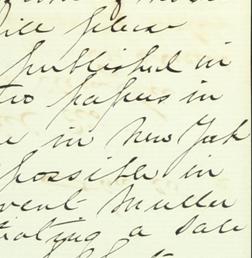 will please
published in
two papers in
in New York
possible in
event Muller
trating a sale